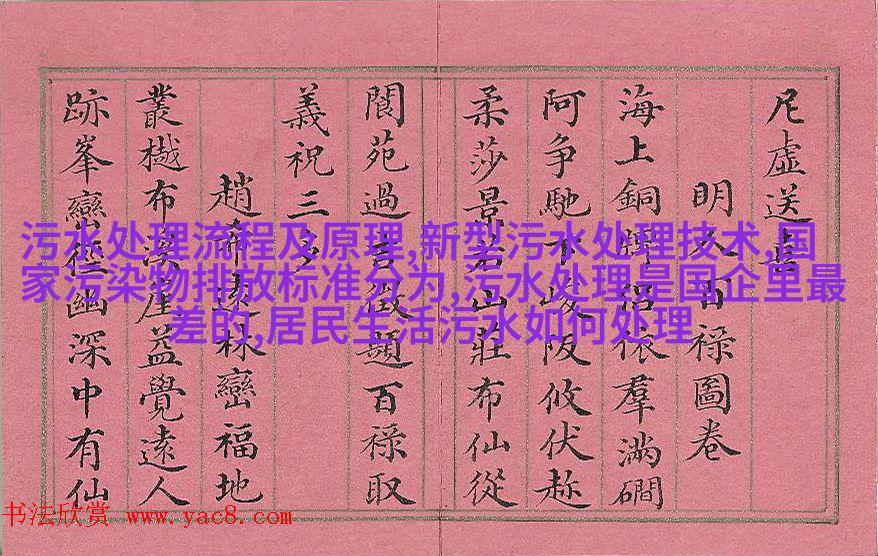 尼虛送
明人百祿圖卷
海上銅沼依羣滿磵
阿争馳下阪攸伏趂
柔莎景若山莊布仙從
閬苑過言徵題百祿取
義祝三多
趙希遠林巒福地
叢樾布濩崖益覺遠人
跡峯巒徑幽深中有仙
污水处理流程及原理,新型污水处理技术,国
家污染物排放标准分为,污水处理是国企里最
差的,居民生活污水如何处理
书法欣赏 www.yac8.com